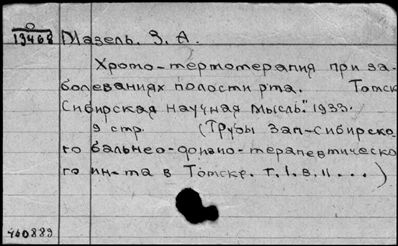 0
19468 Мазель. З. А.
Хромо-термотерапия при за-
болеваниях полости рта. Томск
Сибирская научная мысль". 1933.
9 стр. (Труды Зап-Сибирско
го бальнео-физио-терапевтическо
го ин-та в Томске. т. I. в. II ...)
460889